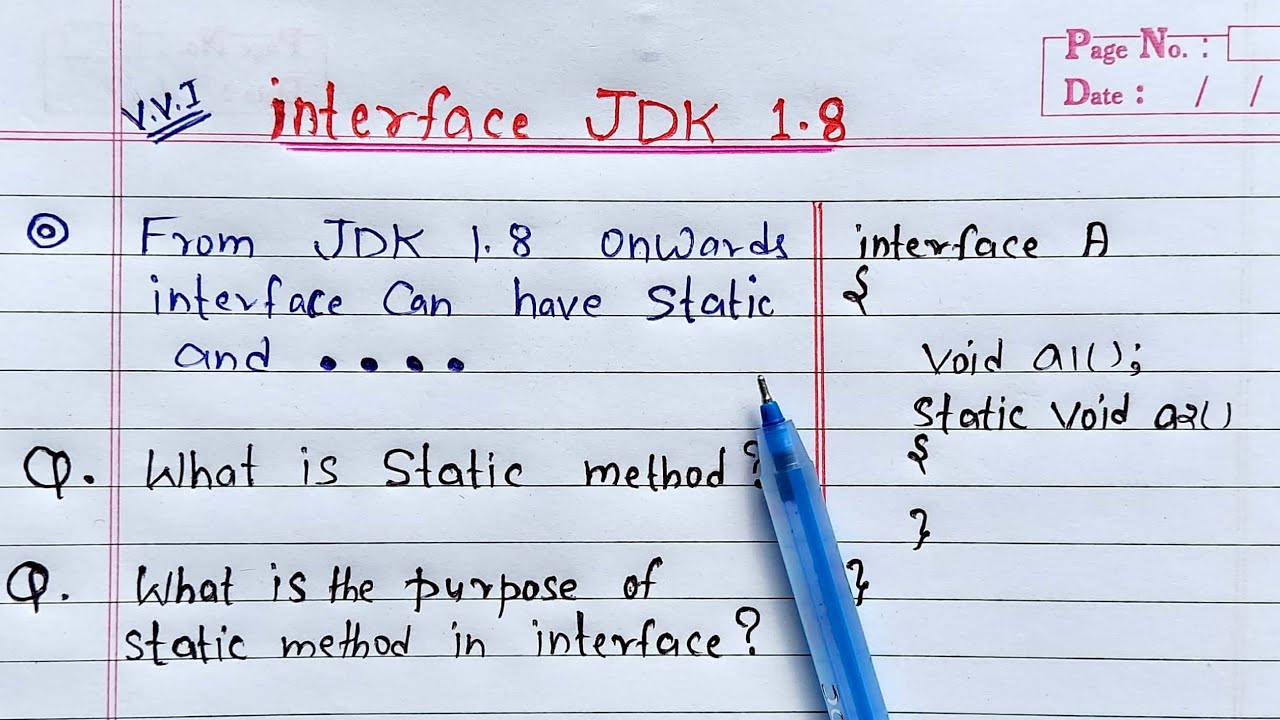 Page No. :
Date : / /
V.V.I interface JDK 1.8
From JDK 1.8 onwards
interface Can have Static
and • • • •
Q. What is Static method?
Q. What is the purpose of
static method in interface?
interface A
{
void a1();
Static void a2()
{
}
}